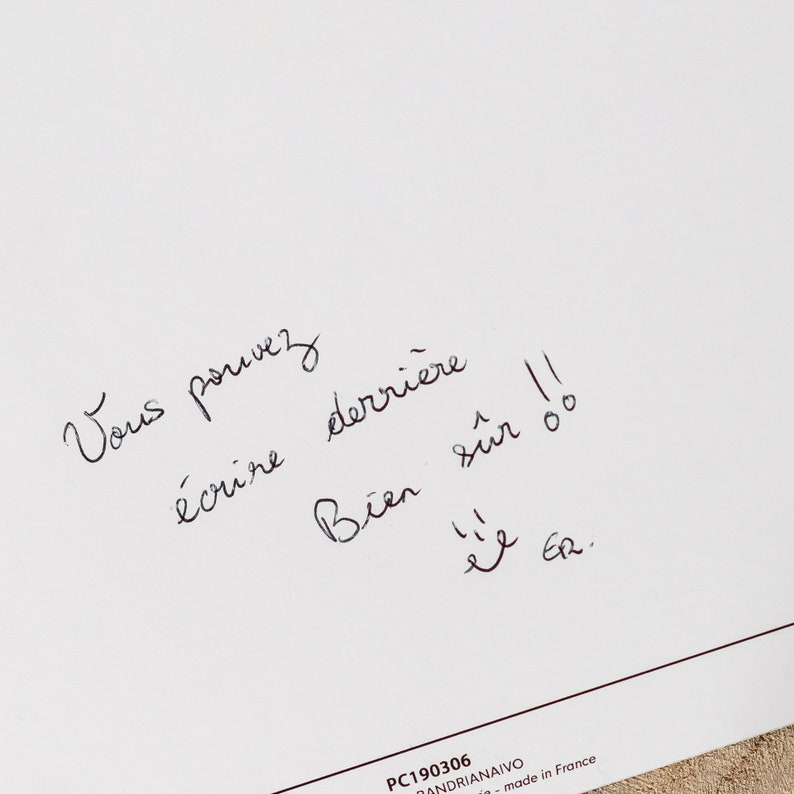 Vous pouvez
écrire derrière
Bien sûr !!
ER.
PC190306
RANDRIANAIVO
- made in France